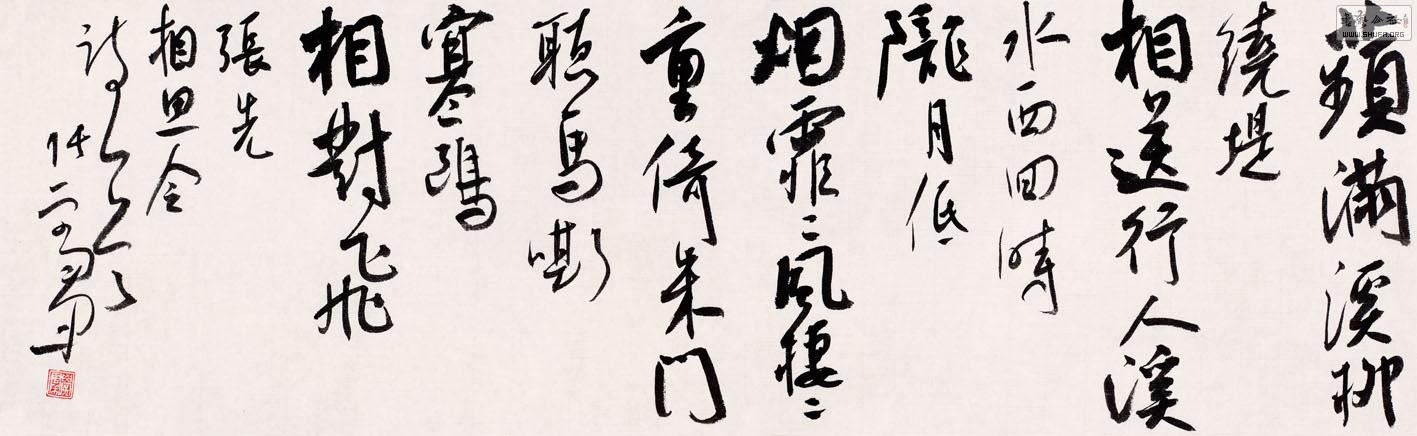 蘋滿溪柳
繞堤
相送行人溪
水西回時
隴月低
烟霏〻風棲〻
重倚朱門
聽馬嘶
寒鷗
相對飛
張先
相思令
詩
WWW.SHUFA.ORG